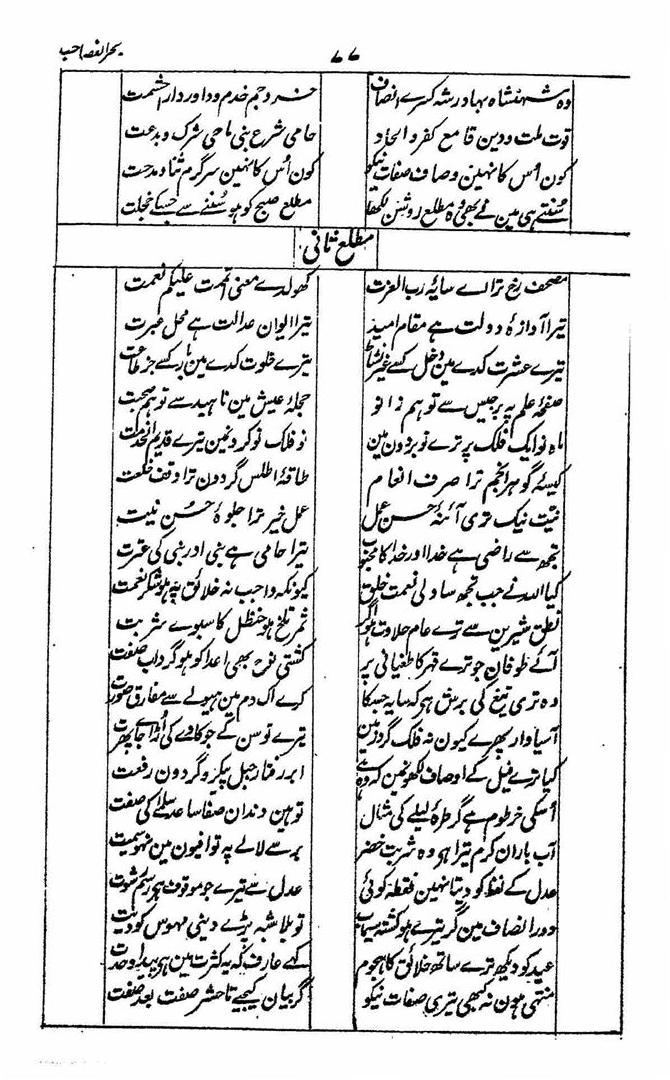 بحر الفصاحت
۷۷
وہ شہنشاہ بہادر شہ کسریٰ انصاف
خسرو و جم خدم و داور دارا حشمت
قوت ملت و دین قامع کفر و الحاد
حامی شرع نبی ماحی شرک و بدعت
کون اُس کا نہین وصاف صفات نیکو
کون اُس کا نہین سرگرم ثنا و مدحت
سُنتے ہی مین نے بھی وہ مطلع روشن لکھا
مطلع صبح کو ہو سُننے سے جسکے خجلت
مطلع ثانی
مصحف رخ ترا اے سایۂ رب العزت
کھولدے معنی اتممت علیکم نعمت
تیرا آوازۂ دولت ہے مقام امید
تیرا ایوان عدالت ہے محل عبرت
تیرے عشرت کدے مین دخل کسے غیر نشاط
تیرے خلوت کدے مین بار کسے جز طاعت
صفحۂ علم پہ برجیس سے تو ہم زانو
حجلۂ عیش مین ناہید سے تو ہم صحبت
ماہ نو ایک فلک پر ترے نو بردون مین
نو فلک نوکرونمین تیرے قدیم الخدمت
کیسۂ گوہر انجم ترا صرف انعام
طاقۂ اطلس گردون ترا وقف خلعت
نیت نیک تری آئنۂ حسن عمل
عمل خیر ترا جلوۂ حُسن نیت
تجھ سے راضی ہے خدا اور خدا کا محبوب
تیرا حامی ہے نبی اور نبی کی عترت
کیا اللہ نے جب تجھ سا ولی نعمت خلق
کیونکہ واجب نہ خلائق پہ ہو شکر نعمت
نطق شیرین سے ترے عام حلاوت ہو اگر
ثمر تلخ ہو حنظل کا سبوے شربت
آئے طوفان جو ترے قہر کا طغیانی پر
کشتی نوح بھی اعدا کو ہو گرداب صفت
وہ تری تیغ کی برش ہو کہ سایہ جسکا
کرے اک دم مین ہیولے سے مفارق صورت
آسیا وار پھرے کیون نہ فلک گر زمین
تیرے توسن کے جو کاوے کی اُڑائے پھرت
کیا ترے فیل کے اوصاف لکھونمین کہ وہ ہے
ابر رفتار جبل پیکر و گردون رفعت
اُسکی خرطوم ہے گر طرۂ لیلے کی مثال
تو ہین دندان صفا ساعد سلمٰے کی صفت
آب باران کرم تیرا ہو وہ شربت خضر
برسے لالے پہ تو افیون مین نہو سمیت
عدل کے لفظ کو دیتا نہین نقطہ کوئی
عدل سے تیرے جو موقوف ہی رسم رشوت
دور انصاف مین گر تیرے ہو کشتہ سیماب
تو بلا شبہ پڑے دینی مہوس کو دیت
عید کو دیکھ ترے ساتھ خلائق کا ہجوم
کہے عارف کہ یہ کثرت مین ہی پیدا وحدت
منتہی ہون نہ کبھی تیری صفات نیکو
گر بیان کیجیے تا حشر صفت بعد صفت